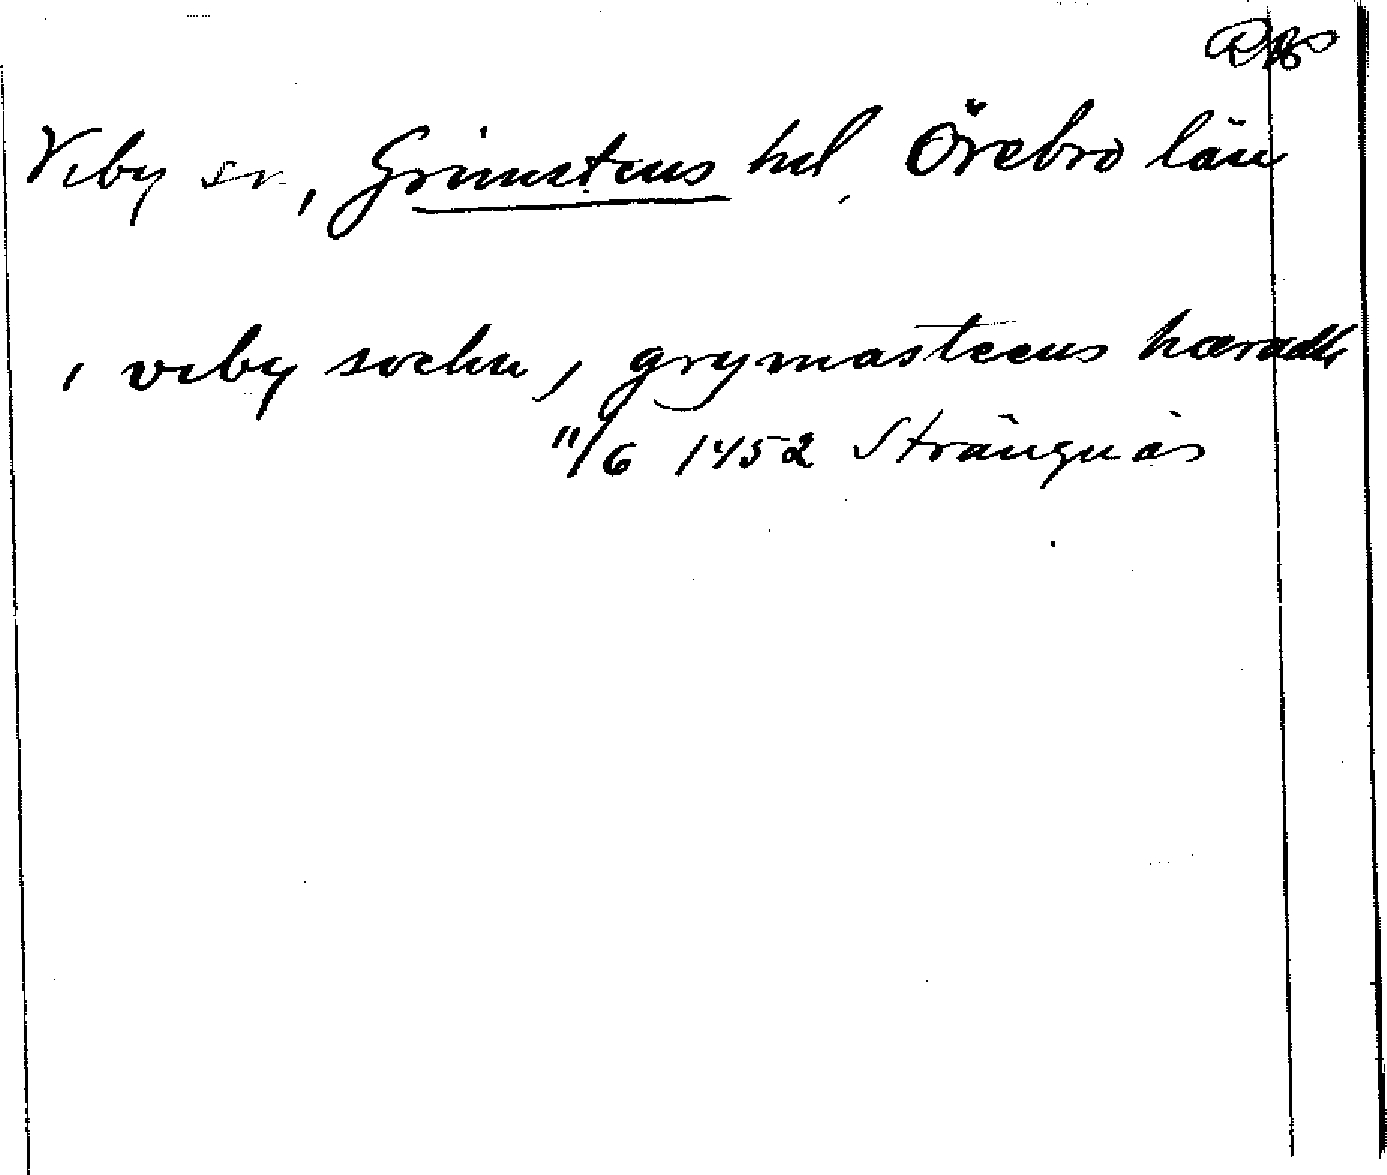 Viby sn, Grimstens hd, Örebro län
i viby sochn, grymasteens hæradh
11/6 1452 Strängnäs